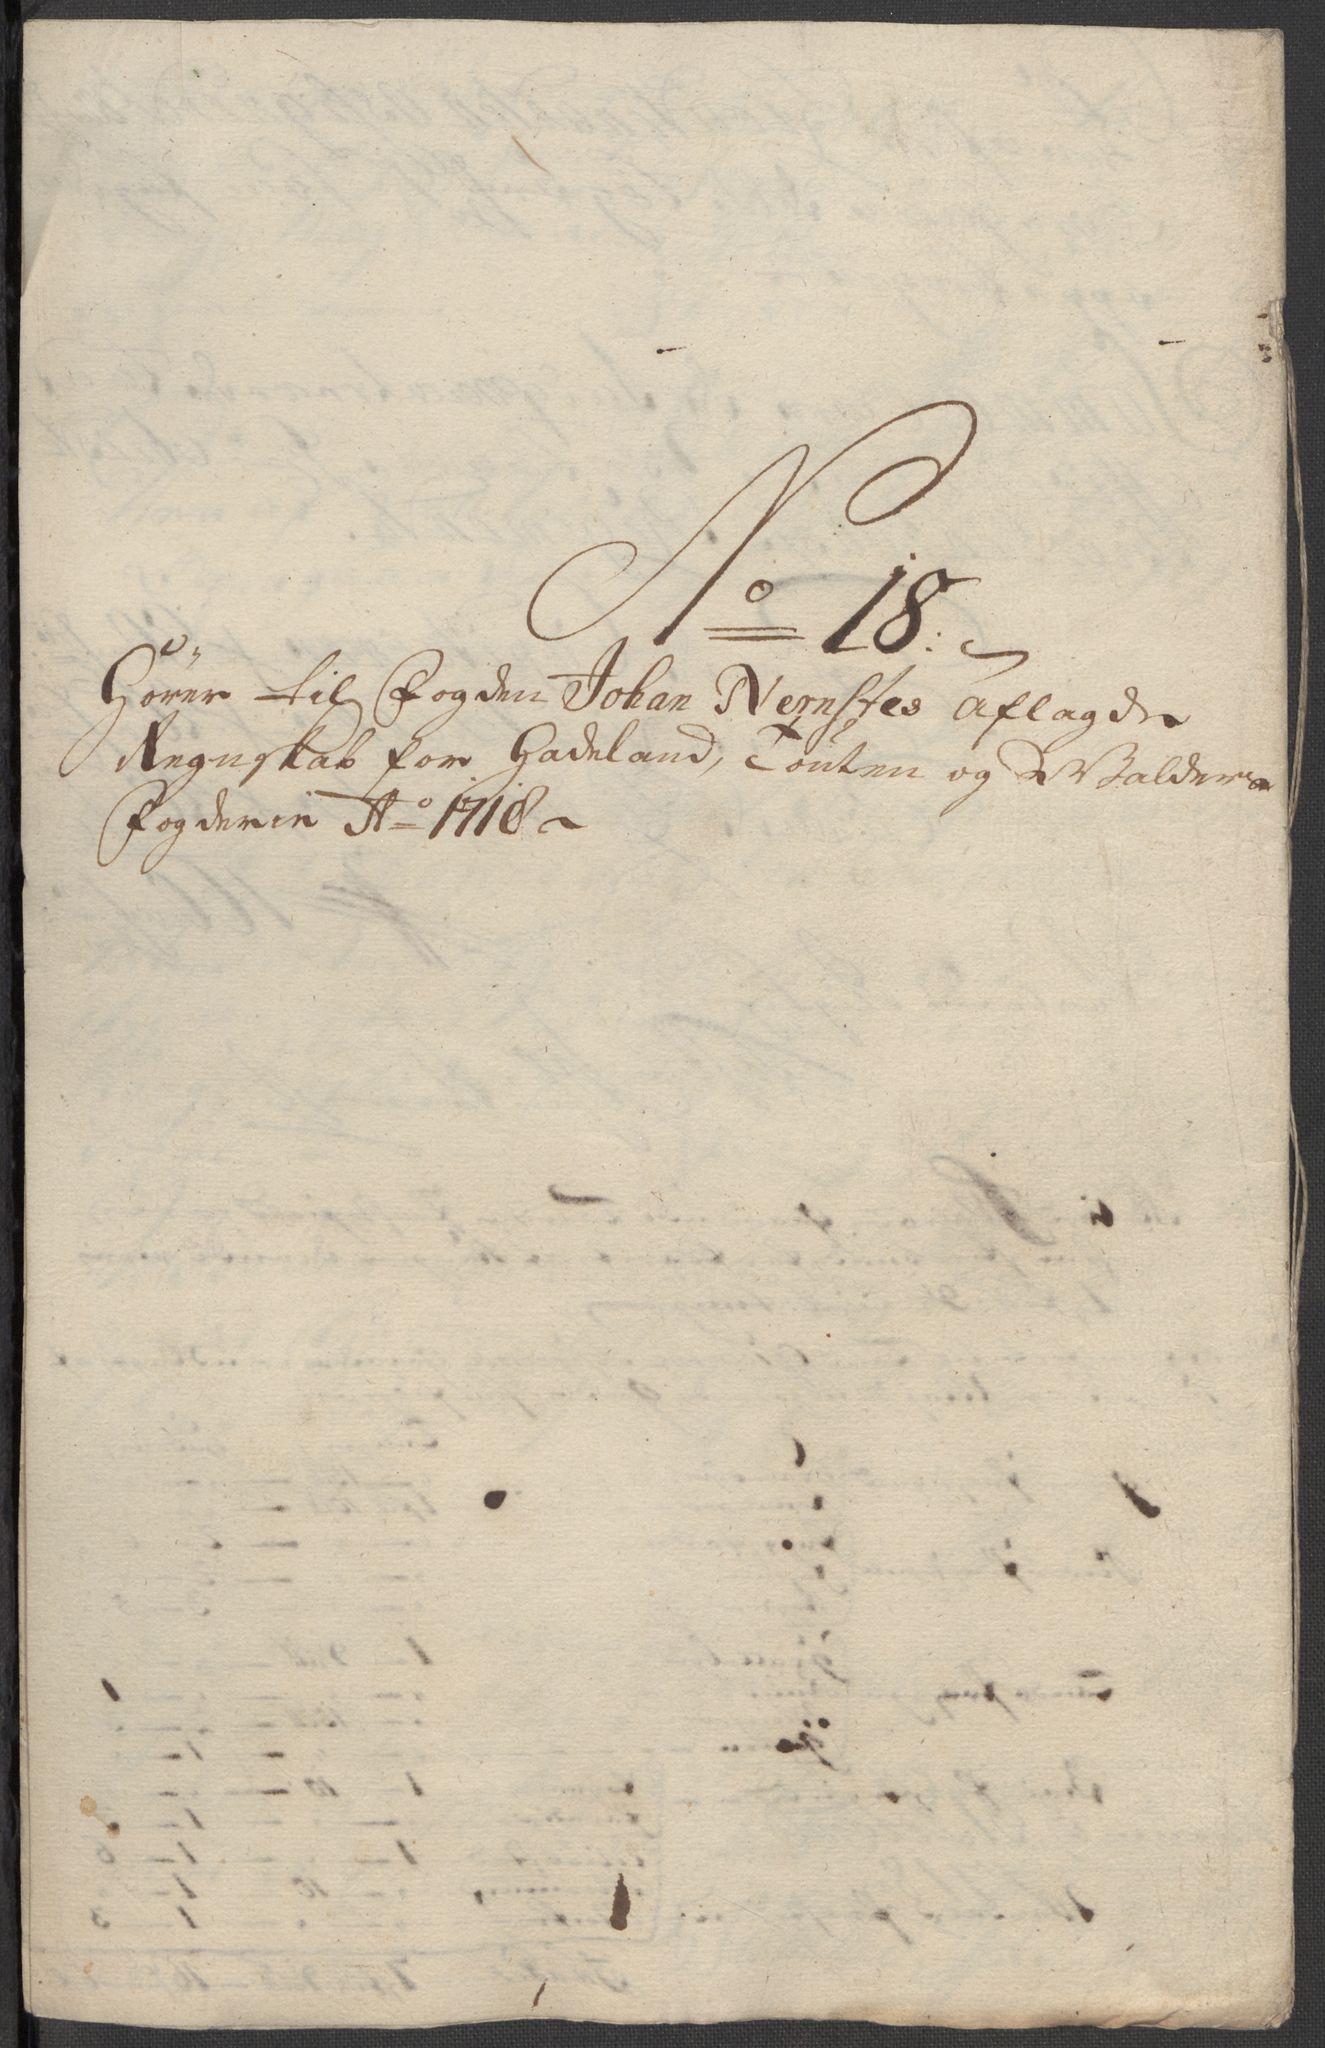 No 18.
Hører til Fogden Johan Nernstes aflagde
Regnskab for Hadeland, Toten og Walders
Fogderie Ao 1718